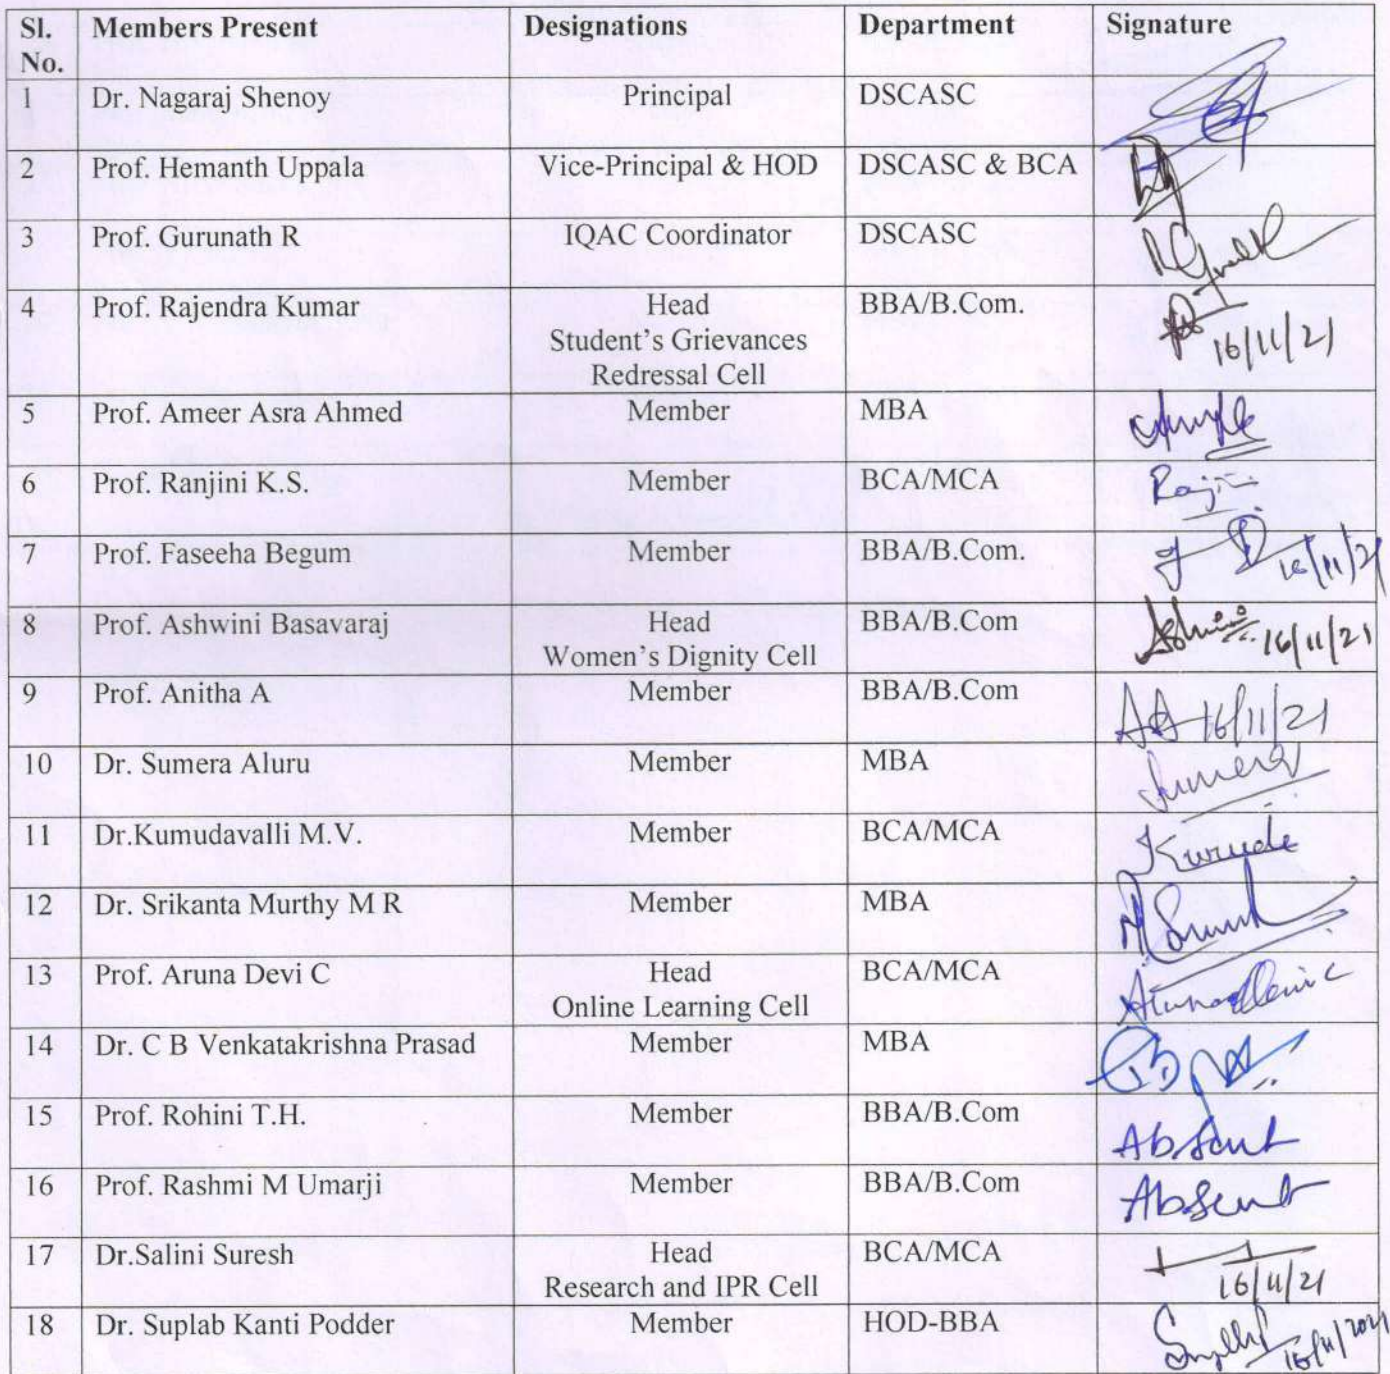 Sl. No. Members Present Designations Department Signature
1 Dr. Nagaraj Shenoy Principal DSCASC
2 Prof. Hemanth Uppala Vice-Principal & HOD DSCASC & BCA
3 Prof. Gurunath R IQAC Coordinator DSCASC
4 Prof. Rajendra Kumar Head BBA/B.Com.
Student's Grievances
Redressal Cell
16/11/21
5 Prof. Ameer Asra Ahmed Member MBA
6 Prof. Ranjini K.S. Member BCA/MCA
7 Prof. Faseeha Begum Member BBA/B.Com. 16/11/21
8 Prof. Ashwini Basavaraj Head BBA/B.Com
Women's Dignity Cell
16/11/21
9 Prof. Anitha A Member BBA/B.Com 16/11/21
10 Dr. Sumera Aluru Member MBA Sumera
11 Dr.Kumudavalli M.V. Member BCA/MCA
12 Dr. Srikanta Murthy M R Member MBA
13 Prof. Aruna Devi C Head BCA/MCA
Online Learning Cell
14 Dr. C B Venkatakrishna Prasad Member MBA
15 Prof. Rohini T.H. Member BBA/B.Com Absent
16 Prof. Rashmi M Umarji Member BBA/B.Com Absent
17 Dr.Salini Suresh Head BCA/MCA
Research and IPR Cell
16/11/21
18 Dr. Suplab Kanti Podder Member HOD-BBA 16/11/2021